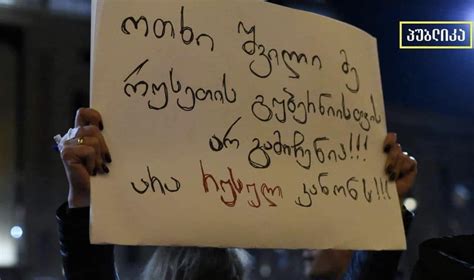 პუბლიკა
ოთხი შვილი მე
რუსეთის გუბერნიისთვის
არ გამიჩენია!!!
არა რუსულ კანონს!!!